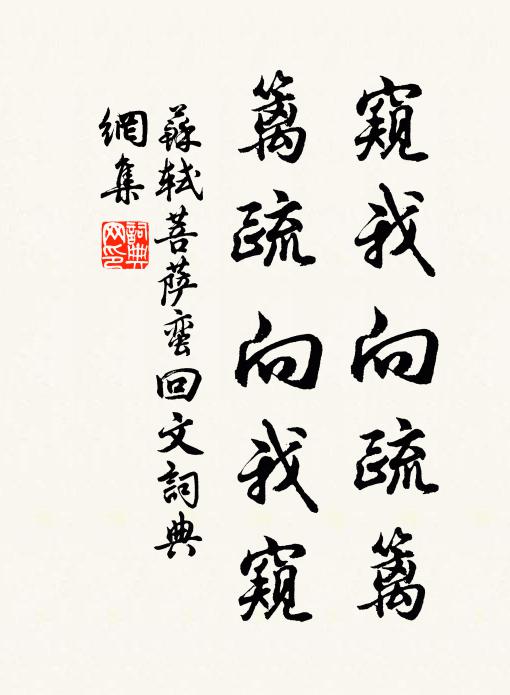 窺我向疏籬
籬疏向我窺
蘇軾菩薩蛮回文詞典
網集
詞典网印